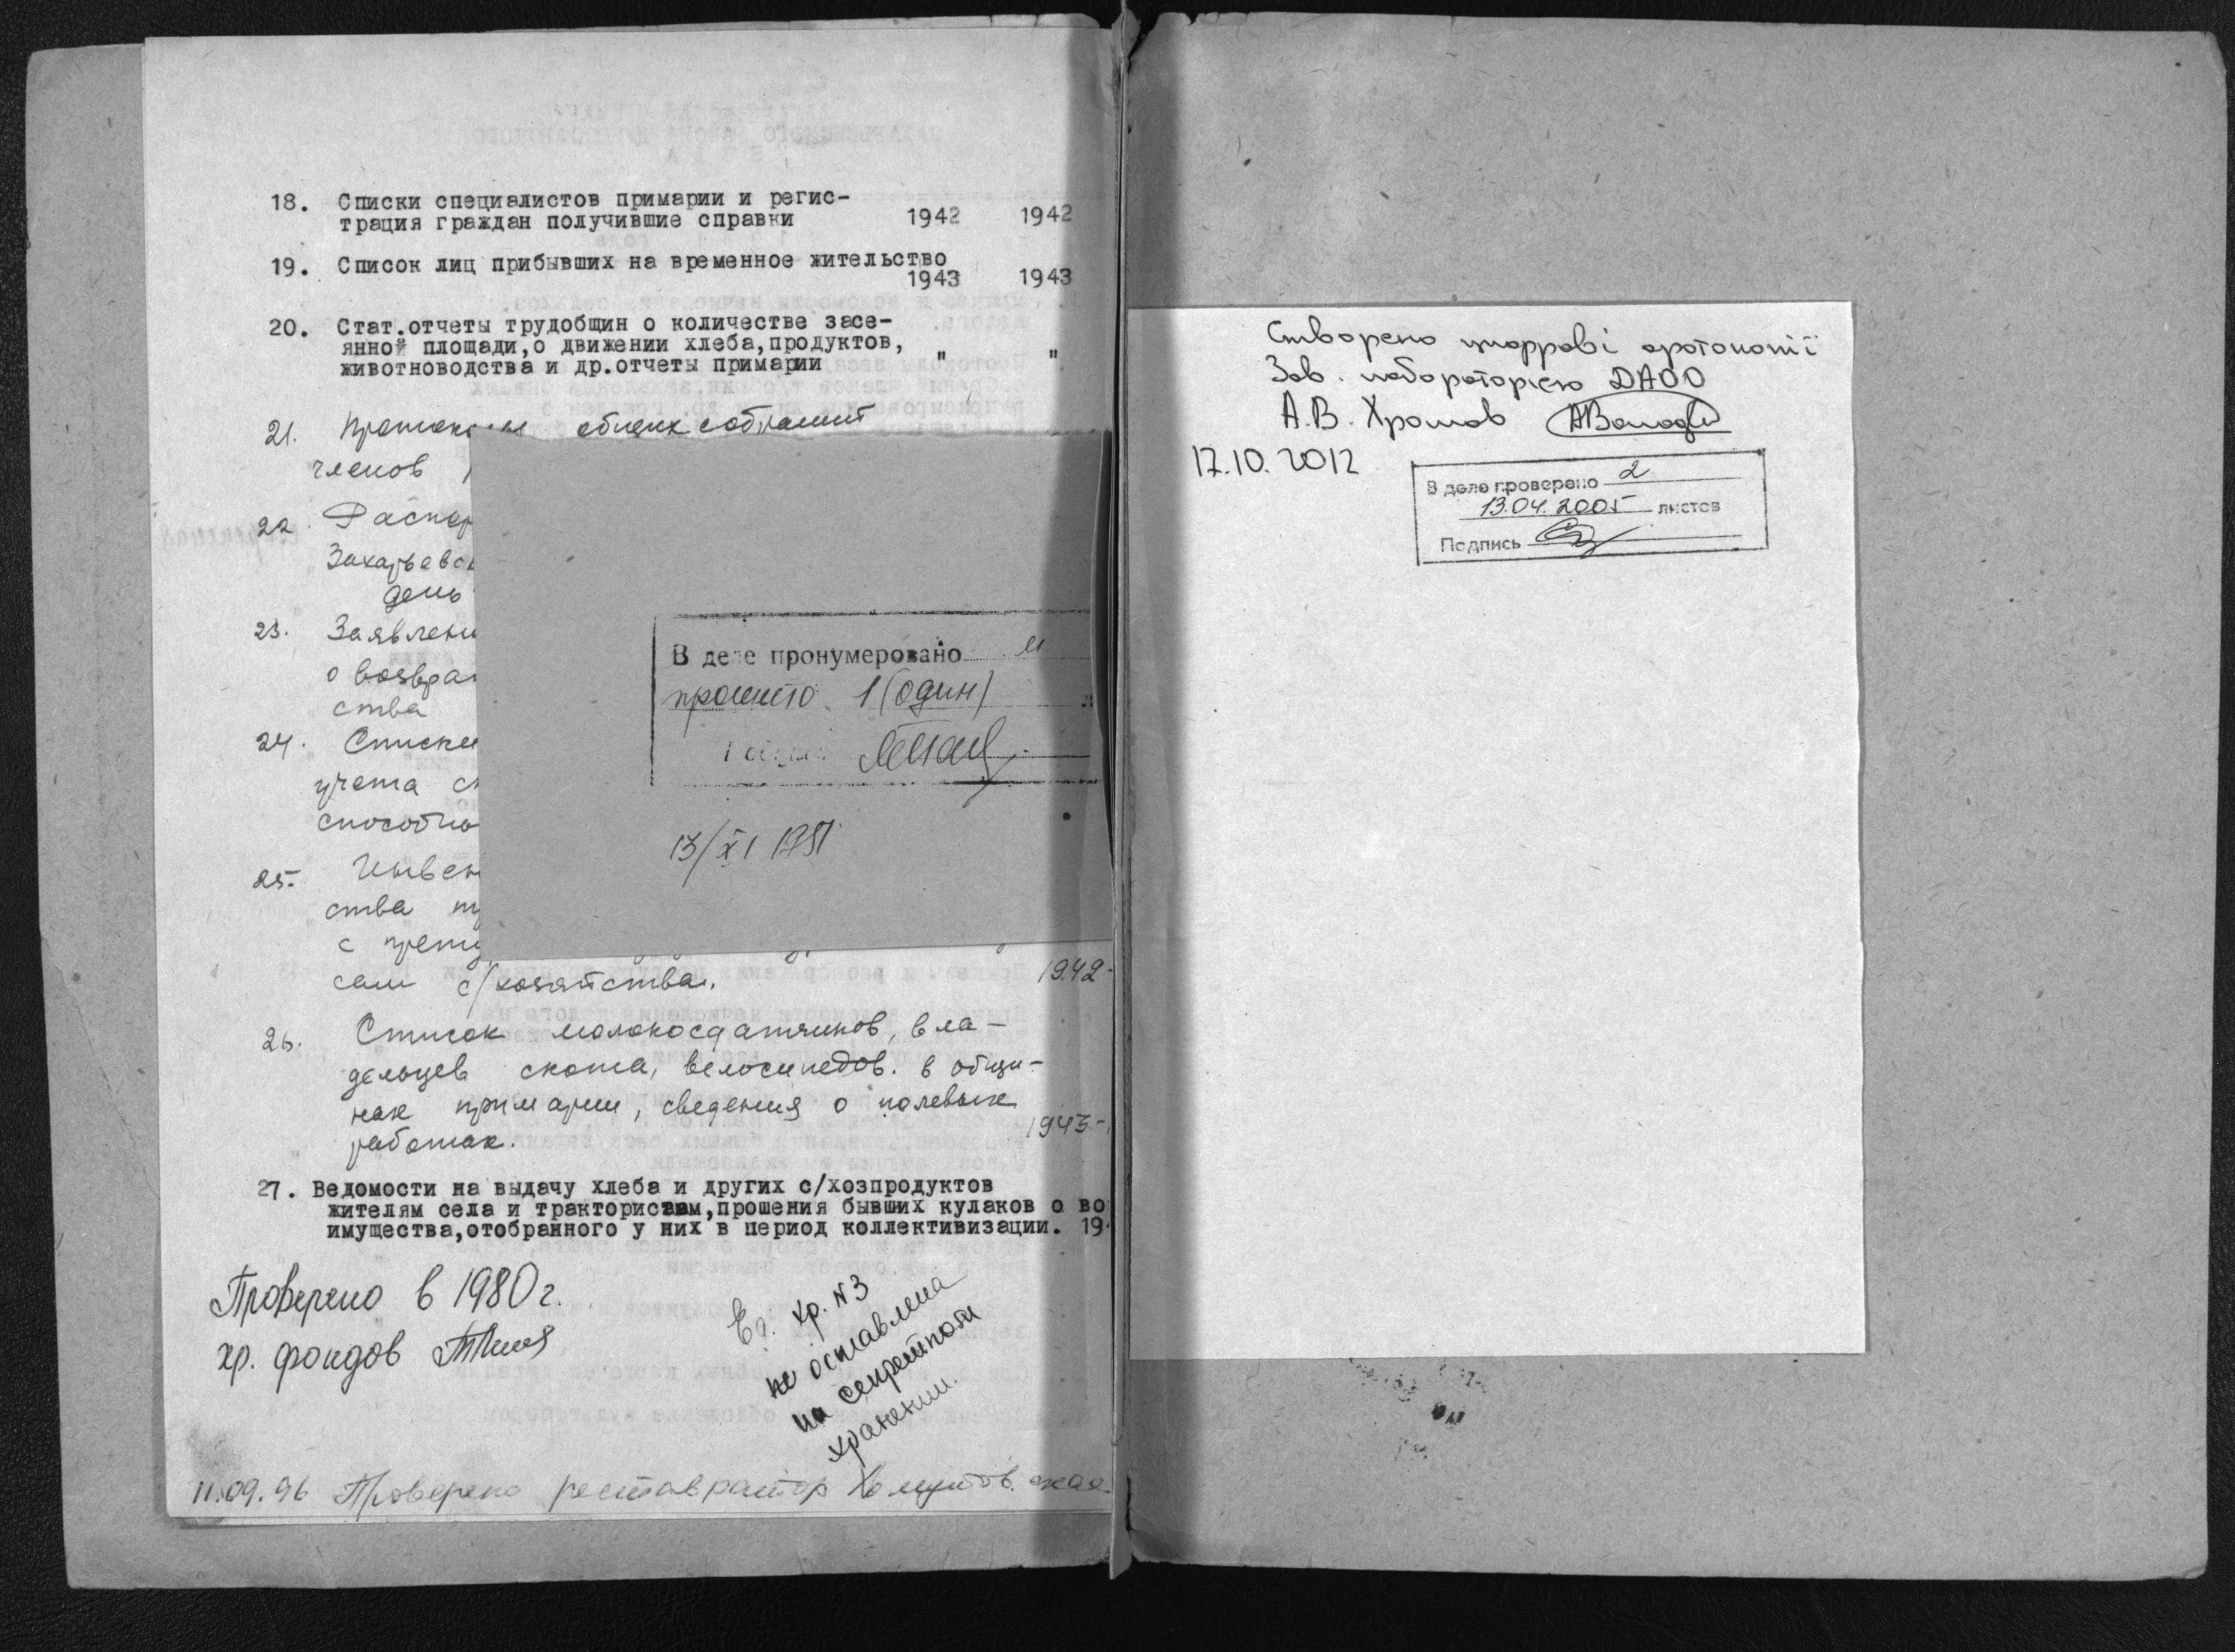 18. Списки специалистов примарии и регис-
трация граждан получившие справки 1942 1942
19. Список лиц прибывших на временное жительство
1943 1943
20. Стат.отчеты трудобщин о количестве засе-
янной площади,о движении хлеба,продуктов, " "
животноводства и др.отчеты примарии
21. Протоколы общих собраний
членов
22. Распор
Захарьевск
день
23. Заявлени
о возвра
ства
24. Списки
учета сп
способно
25. Инвен
ства
с
сам с/хозяйства. 1942-
26. Список молокосдатчиков, вла-
дельцев скота, велосипедов. в общи-
нах примарии, сведения о полевых
работах. 1943-
27. Ведомости на выдачу хлеба и других с/хозпродуктов
жителям села и трактористам,прошения бывших кулаков о во
имущества,отобранного у них в период коллективизации. 19
Проверено в 1980 г.
хр. фондов
Ед. хр. N3
не оставлена
на секретном
хранении.
11.09.96 Проверено реставратор
В деле пронумеровано
прошито 1 (один)
13/XI 1981
Створено цифрові фотокопії
Зав. лабораторією ДАОО
А.В. Хромов
17.10.2012
В деле проверено 2
13.04.2005 листов
Подпись